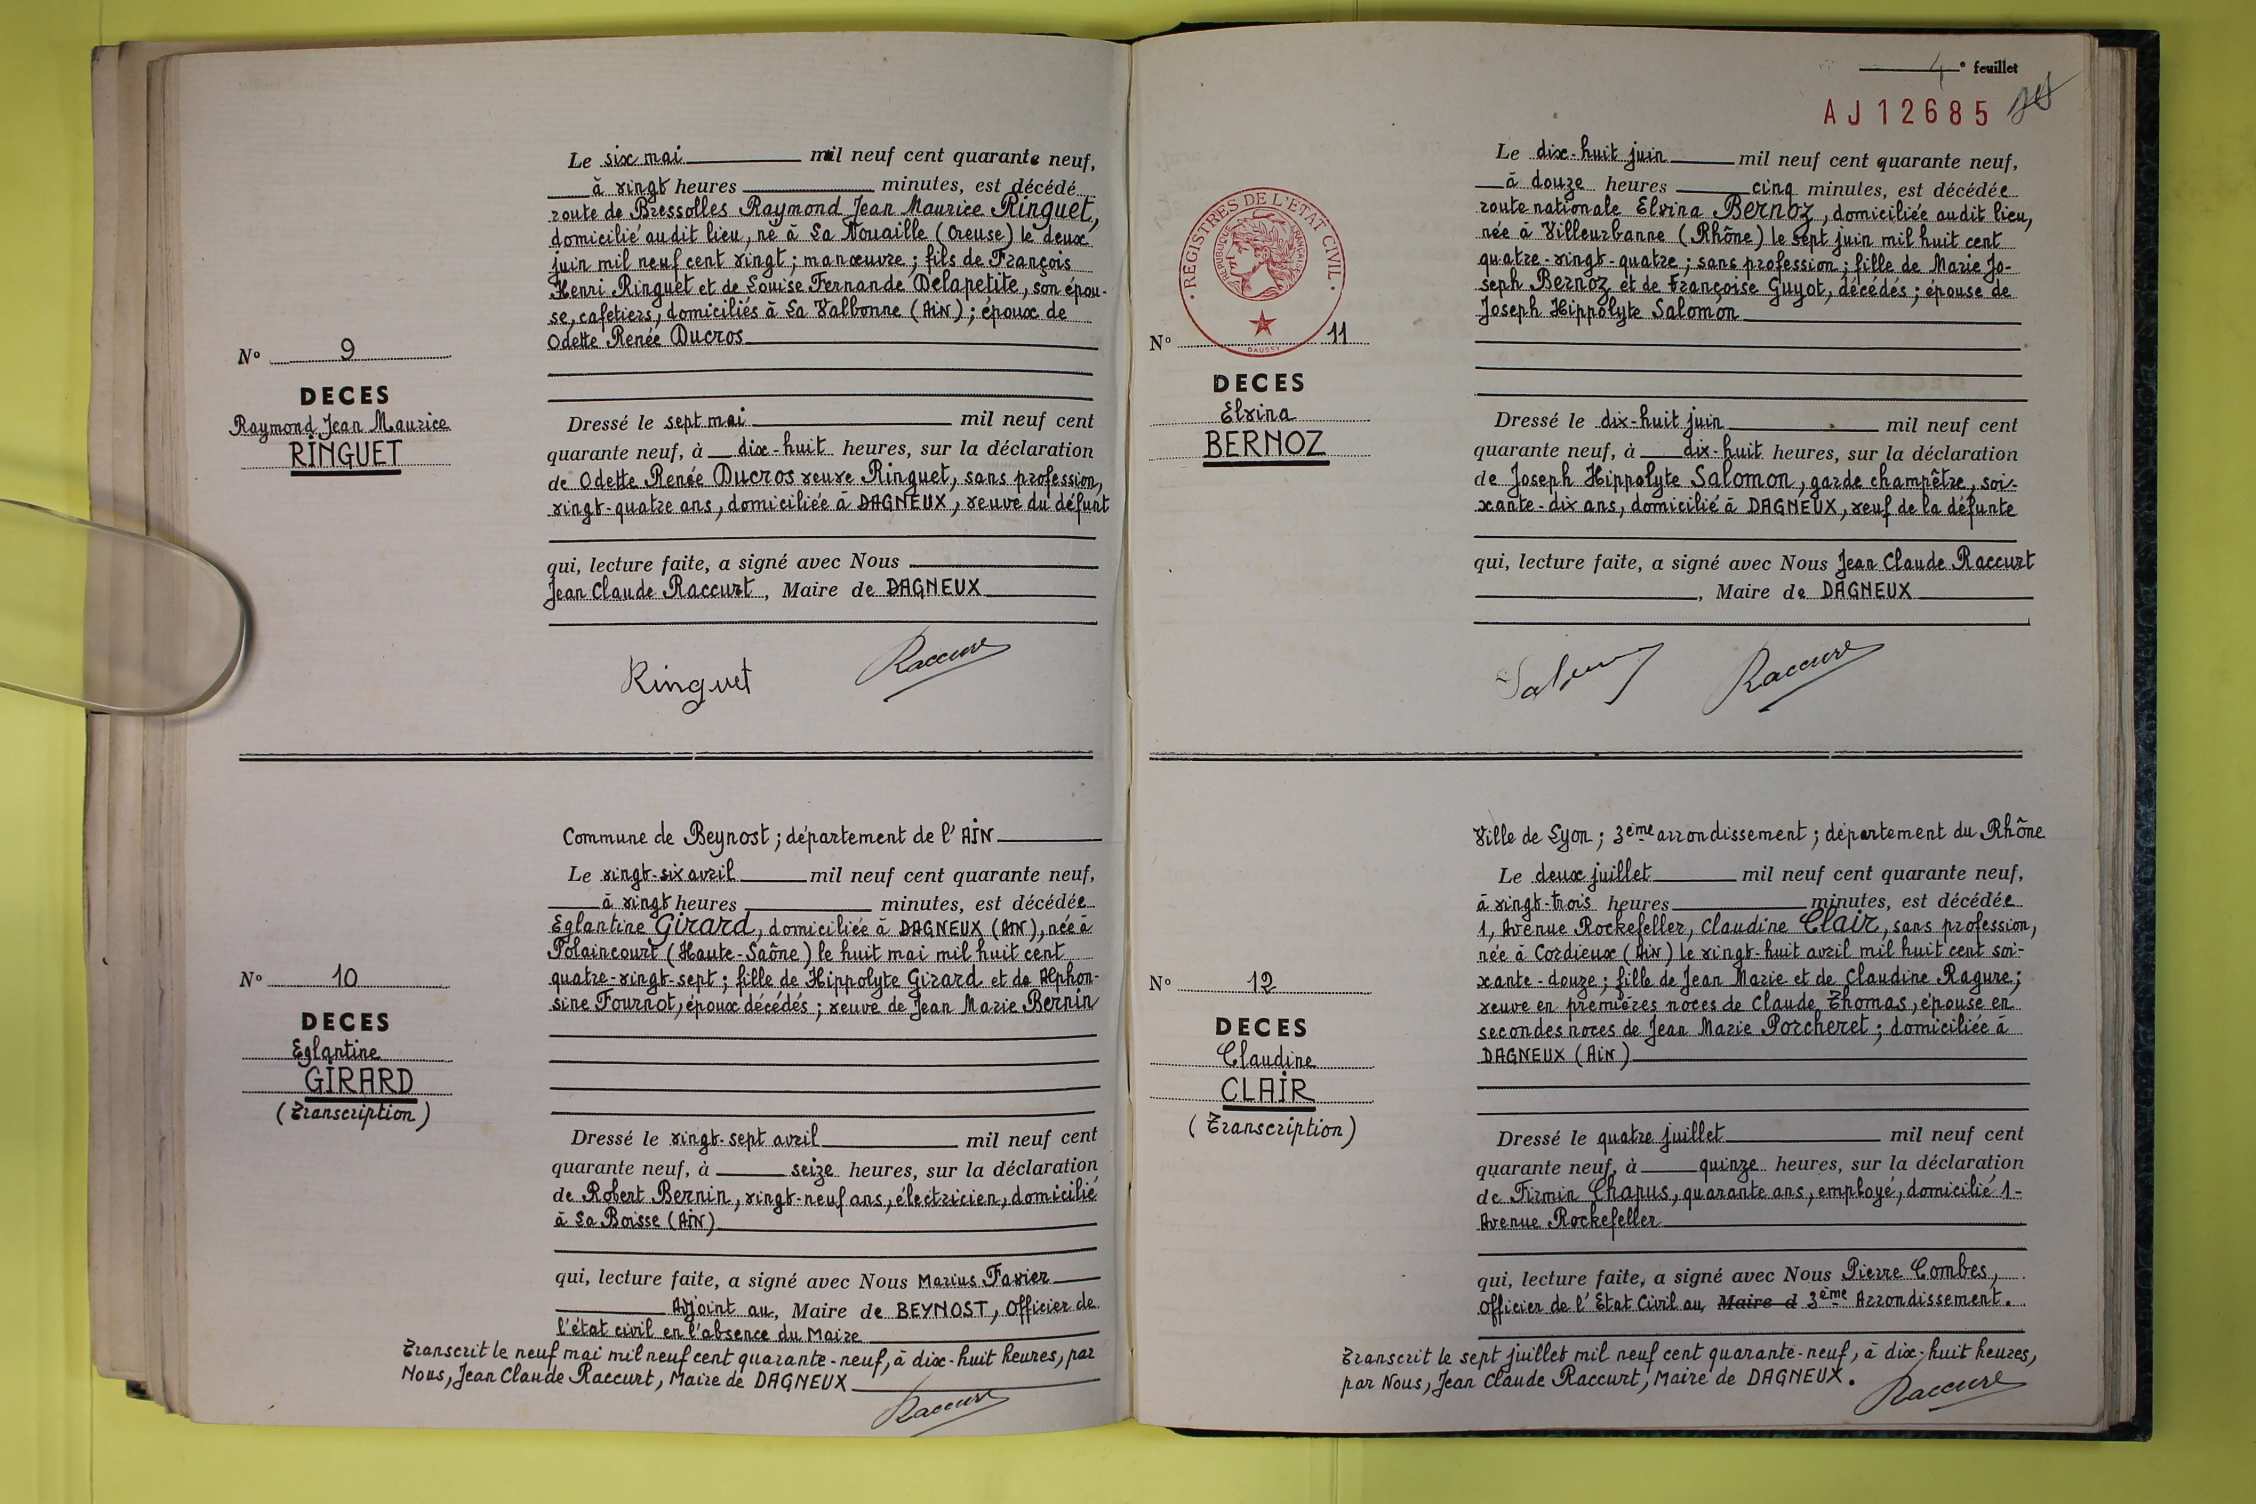 Le six mai mil neuf cent quarante neuf,
à vingt heures minutes, est décédé
route de Bressolles Raymond Jean Maurice Ringuet,
domicilié audit lieu, né à La Nouaille (Creuse) le deux
juin mil neuf cent vingt ; manœuvre ; fils de François
Henri Ringuet et de Louise Fernande Delapetite, son épou-
se, cafetiers, domiciliés à La Valbonne (AIN) ; époux de
Odette Renée Ducros
N° 9
DECES
Raymond Jean Maurice
RINGUET
Dressé le sept mai mil neuf cent
quarante neuf, à dix-huit heures, sur la déclaration
de Odette Renée Ducros veuve Ringuet, sans profession,
vingt-quatre ans, domiciliée à DAGNEUX, veuve du défunt
qui, lecture faite, a signé avec Nous
Jean Claude Raccurt, Maire de DAGNEUX
Ringuet Raccurt
Commune de Beynost ; département de l'AIN
Le vingt-six avril mil neuf cent quarante neuf,
à vingt heures minutes, est décédée
Eglantine Girard, domiciliée à DAGNEUX (AIN), née à
Polaincourt (Haute-Saône) le huit mai mil huit cent
quatre-vingt-sept ; fille de Hippolyte Girard et de Alphon-
sine Fournot, époux décédés ; veuve de Jean Marie Bernin
N° 10
DECES
Eglantine
GIRARD
(Transcription)
Dressé le vingt-sept avril mil neuf cent
quarante neuf, à seize heures, sur la déclaration
de Robert Bernin, vingt-neuf ans, électricien, domicilié
à La Boisse (AIN)
qui, lecture faite, a signé avec Nous Marius Favier
Adjoint au, Maire de BEYNOST, Officier de
l'état civil en l'absence du Maire
Transcrit le neuf mai mil neuf cent quarante-neuf, à dix-huit heures, par
Nous, Jean Claude Raccurt, Maire de DAGNEUX
Raccurt
4e feuillet
AJ12685
Le dix-huit juin mil neuf cent quarante neuf,
à douze heures cinq minutes, est décédée
route nationale Elvina Bernoz, domiciliée audit lieu,
née à Villeurbanne (Rhône) le sept juin mil huit cent
quatre-vingt-quatre ; sans profession ; fille de Marie Jo-
seph Bernoz et de Françoise Guyot, décédés ; épouse de
Joseph Hippolyte Salomon
REGISTRES DE L'ETAT CIVIL
REPUBLIQUE FRANÇAISE
DAUSSY
N° 11
DECES
Elvina
BERNOZ
Dressé le dix-huit juin mil neuf cent
quarante neuf, à dix-huit heures, sur la déclaration
de Joseph Hippolyte Salomon, garde champêtre, soi-
xante-dix ans, domicilié à DAGNEUX, veuf de la défunte
qui, lecture faite, a signé avec Nous Jean Claude Raccurt
, Maire de DAGNEUX
Raccurt
Ville de Lyon ; 3ème arrondissement ; département du Rhône
Le deux juillet mil neuf cent quarante neuf,
à vingt-trois heures minutes, est décédée
1, Avenue Rockefeller, Claudine Clair, sans profession,
née à Cordieux (AIN) le vingt-huit avril mil huit cent soi-
xante-douze ; fille de Jean Marie et de Claudine Ragure ;
veuve en premières noces de Claude Thomas, épouse en
secondes noces de Jean Marie Porcheret ; domiciliée à
DAGNEUX (AIN)
N° 12
DECES
Claudine
CLAIR
(Transcription)
Dressé le quatre juillet mil neuf cent
quarante neuf, à quinze heures, sur la déclaration
de Firmin Chapus, quarante ans, employé, domicilié 1-
Avenue Rockefeller
qui, lecture faite, a signé avec Nous Pierre Combes,
Officier de l'Etat Civil au, Maire d 3ème Arrondissement.
Transcrit le sept juillet mil neuf cent quarante-neuf, à dix-huit heures,
par Nous, Jean Claude Raccurt, Maire de DAGNEUX.
Raccurt